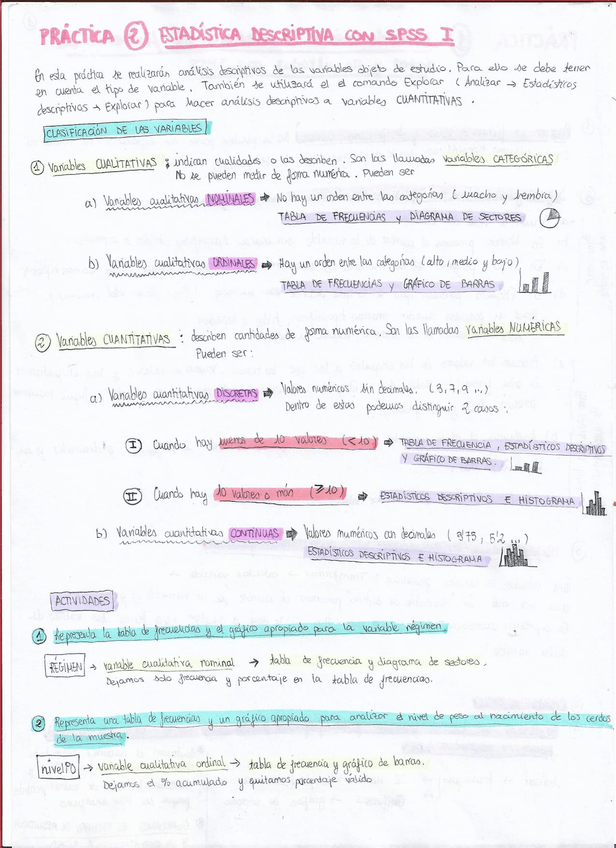 PRÁCTICA ② ESTADÍSTICA DESCRIPTIVA CON SPSS I
En esta práctica se realizarán análisis descriptivos de las variables objeto de estudio. Para ello se debe tener
en cuenta el tipo de variable. También se utilizará el el comando Explorar (Analizar → Estadísticos
descriptivos → Explorar) para hacer análisis descriptivos a variables CUANTITATIVAS.
CLASIFICACIÓN DE LAS VARIABLES
① Variables CUALITATIVAS : indican cualidades o las describen. Son las llamadas variables CATEGÓRICAS
No se pueden medir de forma numérica. Pueden ser
a) Variables cualitativas NOMINALES ➡ No hay un orden entre las categorías (macho y hembra)
TABLA DE FRECUENCIAS y DIAGRAMA DE SECTORES
b) Variables cualitativas ORDINALES ➡ Hay un orden entre las categorías (alto, medio y bajo)
TABLA DE FRECUENCIAS y GRÁFICO DE BARRAS
② Variables CUANTITATIVAS : describen cantidades de forma numérica. Son las llamadas variables NUMÉRICAS
Pueden ser:
a) Variables cuantitativas DISCRETAS ➡ Valores numéricos sin decimales. (3, 7, 9 ...)
Dentro de estas podemos distinguir 2 casos:
Ⓘ Cuando hay menos de 10 valores (<10) ➡ TABLA DE FRECUENCIA, ESTADÍSTICOS DESCRIPTIVOS
Y GRÁFICO DE BARRAS.
II Cuando hay 10 valores o más (≥10) ➡ ESTADÍSTICOS DESCRIPTIVOS E HISTOGRAMA
b) Variables cuantitativas CONTINUAS ➡ Valores numéricos con decimales (3'75, 5'2 ...)
ESTADÍSTICOS DESCRIPTIVOS E HISTOGRAMA
ACTIVIDADES
① Representa la tabla de frecuencias y el gráfico apropiado para la variable régimen.
RÉGIMEN → variable cualitativa nominal → tabla de frecuencia y diagrama de sectores.
Dejamos solo frecuencia y porcentaje en la tabla de frecuencias.
② Representa una tabla de frecuencias y un gráfico apropiado para analizar el nivel de peso al nacimiento de los cerdos
de la muestra.
nivelPN → variable cualitativa ordinal → tabla de frecuencia y gráfico de barras.
Dejamos el % acumulado y quitamos porcentaje válido